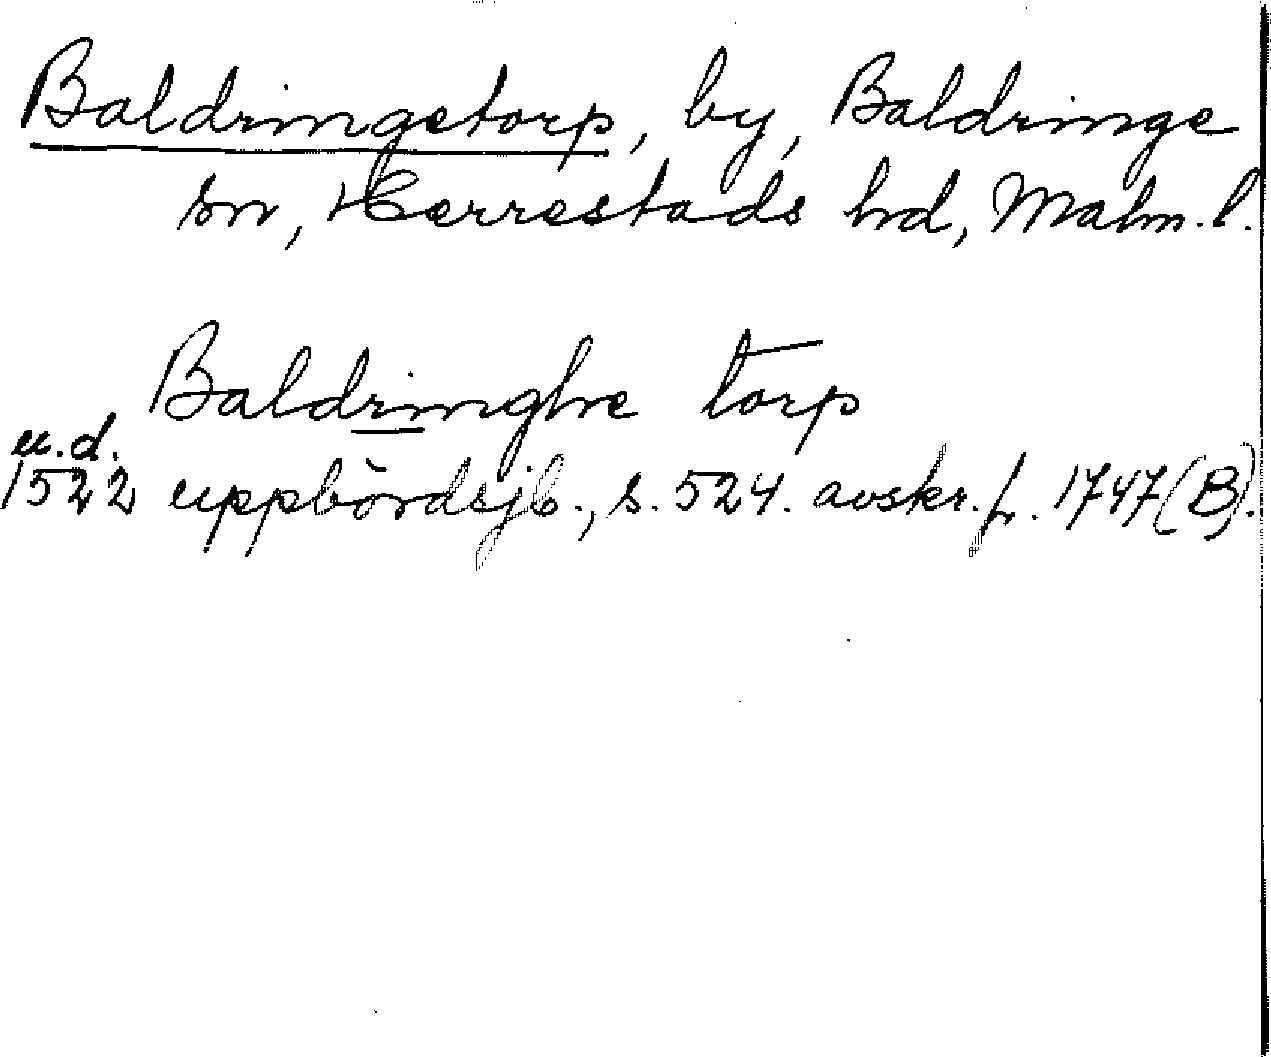 Baldringetorp, by, Baldringe
sn, Herrestads hd, Malm. l.
Baldringhe torp
u.d.
1522 uppbördsjb., s. 524. avskr. fr. 1747 (B).